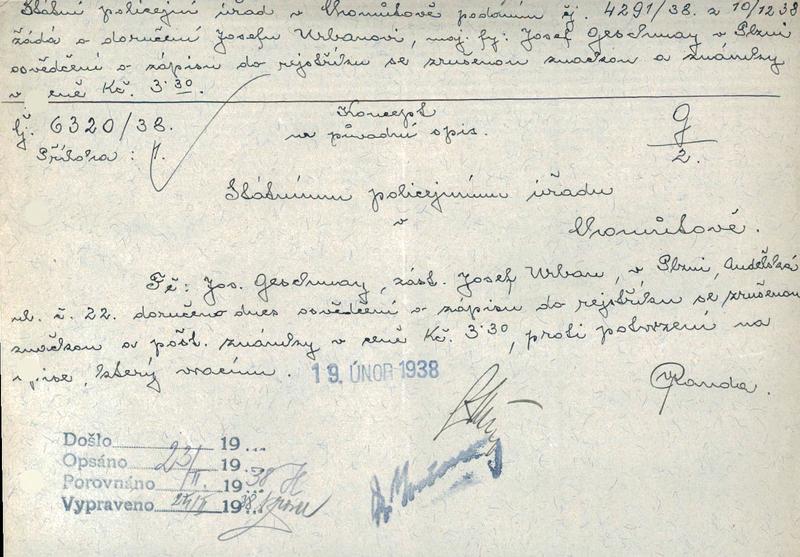 Státní policejní úřad v Hronnůtkově podáním čj. 4291/38. z 10/12 38
žádá o doručení Josefu Urbanovi, maj. fy: Josef Geschmay v Plzni
osvědčení o zápisu do rejstříku se zrušenou značkou a známky
v ceně Kč. 3·30.
čj. 6320/38.
Příloha: 1.
Koncept
na původní opis.
g
2.
Státnímu policejnímu úřadu
v
Fě: Jos. Geschmay, zást. Josef Urban, v Plzni, Andělská
ul. č. 22. doručeno dnes osvědčení o zápisu do rejstříku se zrušenou
značkou a pošt. známky v ceně Kč. 3·30, proti potvrzení na
který vracím.
19. ÚNOR 1938
Randa.
Došlo 19...
Opsáno 23/ 19...
Porovnáno II. 1938
Vypraveno 24/II 1938